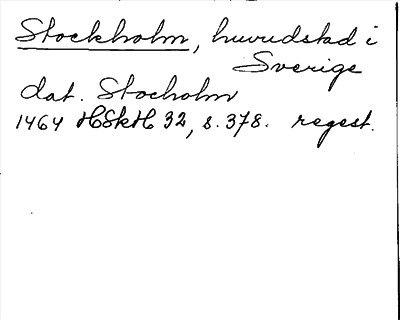 Stockholm, huvudstad i
Sverige
dat. Stocholm
1464 HSkH 32, s. 378. regest.